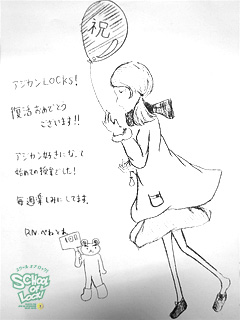 祝
アジカンLOCKS!
復活おめでとう
ございます!!
アジカン好きになって
始めての授業でした!
毎週楽しみにしてます。
R.N. ぺねとね
1回目
SCHOOL
OF
LOCK!